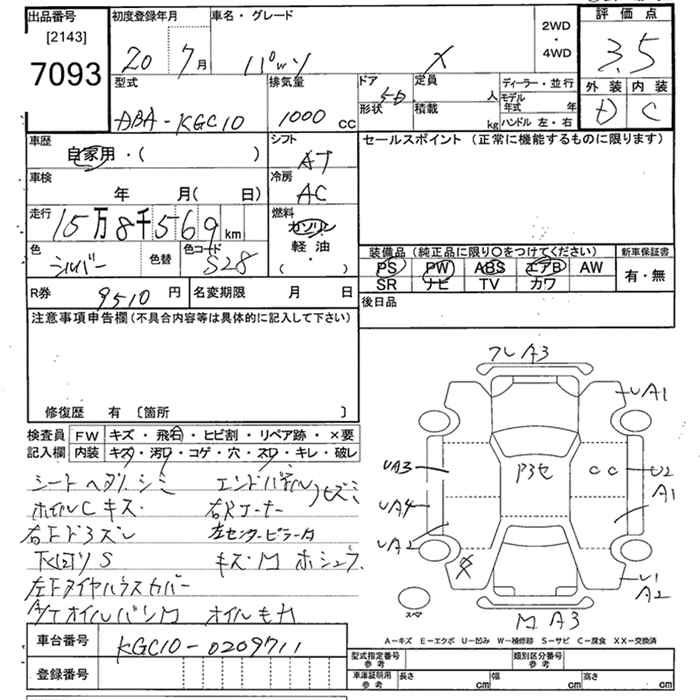 出品番号
[2143]
7093
初度登録年月
20 7月
車名・グレード
パッソ X
2WD
・
4WD
評価点
3.5
外装 内装
D C
型式
ABA-KGC10
排気量
1000 cc
ドア
形状
5D
定員
人
積載
kg
ディーラー・並行
モデル
年式
年
ハンドル 左・右
車歴
自家用・( )
シフト
AT
セールスポイント (正常に機能するものに限ります)
車検
年 月( 日)
冷房
AC
走行
15万8千569km
燃料
ガソリン
軽油
( ・ )
色
シルバー
色替
色コード
S28
装備品 (純正品に限り〇をつけてください)
新車保証書
PS PW ABS エアB AW
SR ナビ TV カワ
有・無
R券
9510 円
名変期限 月 日
後日品
注意事項申告欄(不具合内容等は具体的に記入して下さい)
修復歴 有 〔箇所 〕
検査員
記入欄
FW キズ・飛石・ヒビ割・リペア跡・×要
内装 キズ・汚レ・コゲ・穴・スレ・キレ・破レ
シート ヘタリ、シミ エンドパネル ヒズミ
ホイルC キズ・
右Fド3ズレ
下回り S キズ・M ホシュウ
左Fタイヤハウスカバー
A/Tオイルパン M オイルモレ
フレA3
UA1
UA3
P3セ
C C
U2
A1
UA4
UA2
X
U1
A2
スペア
M A3
A−キズ E−エクボ U−凹み W−補修跡 S−サビ C−腐食 XX−交換済
車台番号
KGC10-0209711
登録番号
型式指定番号
参考
類別区分番号
参考
車庫証明用
参考
長さ cm 幅 cm 高さ cm